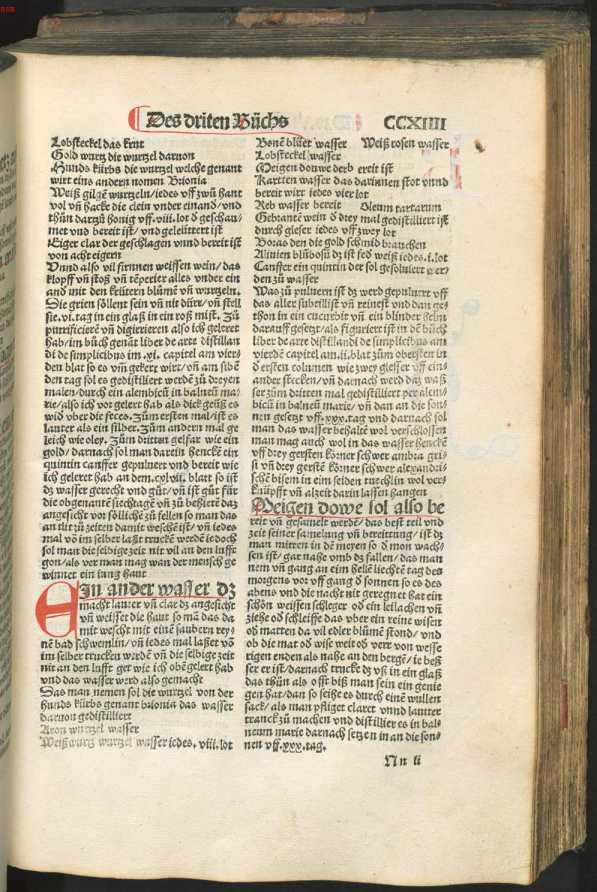 Des driten Buͤchs
CCXIIII
Lobsteckel das krut
Gold wurtz die wurtzel daruon
Hunds kürbs die wurtzel welche genant
wirt eins andern nomen Brionia
Weiß gilgē wurtzeln/iedes vff zwū hant
vol vn̄ hacke die clein vnder einand/vnd
thün dartzů honig vff.viii.lot d geschau/
met vnd bereit ist/vnd geleütrert ist
Eiger clar der geschlagen vnnd bereit ist
von acht eigern
Vnnd also vil firnnen weissen wein/das
klopff vn̄ stoß vn̄ tēperier alles vnder ein
and mit den kritern blůmē vn̄ wurtzeln.
Die grien söllent sein vn̄ nit dürr/vn̄ stell
sie.vi.tag in ein glaß in ein roß mist. Zů
putrificierē vn̄ digirieren also ich geleret
hab/im bůch genāt liber de arte distillan
di de simplicibus im.xi. capitel am vier/
den blat so es vm̄ gekert wirt/vn̄ am sibē
den tag sol es gedistiliert werdē zů dreyen
malen/durch ein alembicū in balneū ma/
rie/also ich vor gelert hab als dick geüß es
wid vber die feces.Zům ersten mal/ist es
lauter als ein silber.Zům andern mal ge
leich wie oley. Züm dritten gelfar wie ein
gold/darnach sol man darein hencke ein
quintin canffer gepuluert vnd bereit wie
ich geleret hab an dem.cxlvii. blatt so ist
dz wasser gerecht vnd gůt/vn̄ ist gůt für
die obgenantē siechtagē vn̄ zů behaltē daz
angesicht vor söllichē zů fellen so man das
an tůt zů zeiten damit weschē ist/vn̄ iedes
mal vō im selber laßt truckē werdē ie doch
sol man die selbige zeit nit vil an den lufft
gon/als ver man mag wan der mensch ge
winnet ein iung haut
EIn ander wasser dz
macht lauter vn̄ clar dz angesicht
vn̄ weisser die haut so mā das da
mit wescht mit einē saubern rey/
nē bad schwemlin/vn̄ iedes mal laßet vō
im selber trucken werdē vn̄ die selbige zeit
nit an den lufft ger wie ich obē gelert hab
vnd das wasser werd also gemacht
Das man nemen sol die wurtzel von der
hunds kürbs genant brionia das wasser
daruon gedistilliert
Aron wurtzel wasser
Weißwurtz wurtzel wasser iedes. viii.lot
Bonē blůet wasser Weiß rosen wasser
Lobsteckel wasser
Meigen douwe derb ereit ist
Kartten wasser das darinnen stot vnnd
bereit wirt iedes vier lot
Reb wasser bereit Oleum tartarum
Gebrantē wein d drey mal gedistilliert ist
durch gleser iedes vff zwey lot
Boras den die gold schmid brauchen
Aliinien blůbosū dz ist fed weiß iedes.i.lot
Canffer ein quintin der sol gesoluiert wer/
den zů wasser
Was zů pulnern ist dz werd gepuluert vff
das aller subtillist vn̄ reinest vnd dan ge/
thon in ein cucurbit vn̄ ein blinder helm
darauff gesetzt/als figuriert ist in dē bůch
liber de arte distillandi de simplicibus am
vierdē capitel am.ii.blat züm obersten in
d ersten colunen wie zwey glesser vff ein/
ander stecken/vn̄ darnach werd daz waß
ser züm dritten mal gedistilliert per alem/
bicū in balneū marie/vn̄ dan an die son/
nen gesetzt vff.xxx.tag vnd darnach sol
man das wasser behaltē wol verschlossen
man mag auch wol in das wasser henckē
vff drey gersten körner schwer ambra gri/
si vn̄ drey gerstē körner schwer alexandri/
schē bisem in eim seiden tuechlin wol ver/
knüpfft vn̄ alzeit darin lassen hangen
MEigen dowe sol also be
reit vn̄ gesamelt werdē/das best teil vnd
zeit seiner samelung vn̄ bereittung/ist dz
man mitten in dē meyen so d mon wach/
sen ist/gar nahe vmb dz fallen/das man
nem vn̄ gang an eim hellē liechtē tag des
morgens vor vff gang d sonnen so es des
abens vnd die nacht nit geregnet hat ein
schön weissen schleger od ein leilachen vn̄
ziehe od schleiffe das vber ein reine wisen
od matten da vil edler blůmē stond/vnd
ob die mat od wise weit od verr von wesse
rigen enden als nahe an den bergē/ie beß
ser er ist/darnach trucke dz vß in ein glaß
das thün als offt biß man sein ein genie
gen hat/dan so seihe es durch einē wullen
sack/als man pfliget claret vnnd lauter
tranck zů machen vnd distillier es in bal/
neum marie darnach setze n in an die son/
nen vff.xxx.tag.
Nn ii